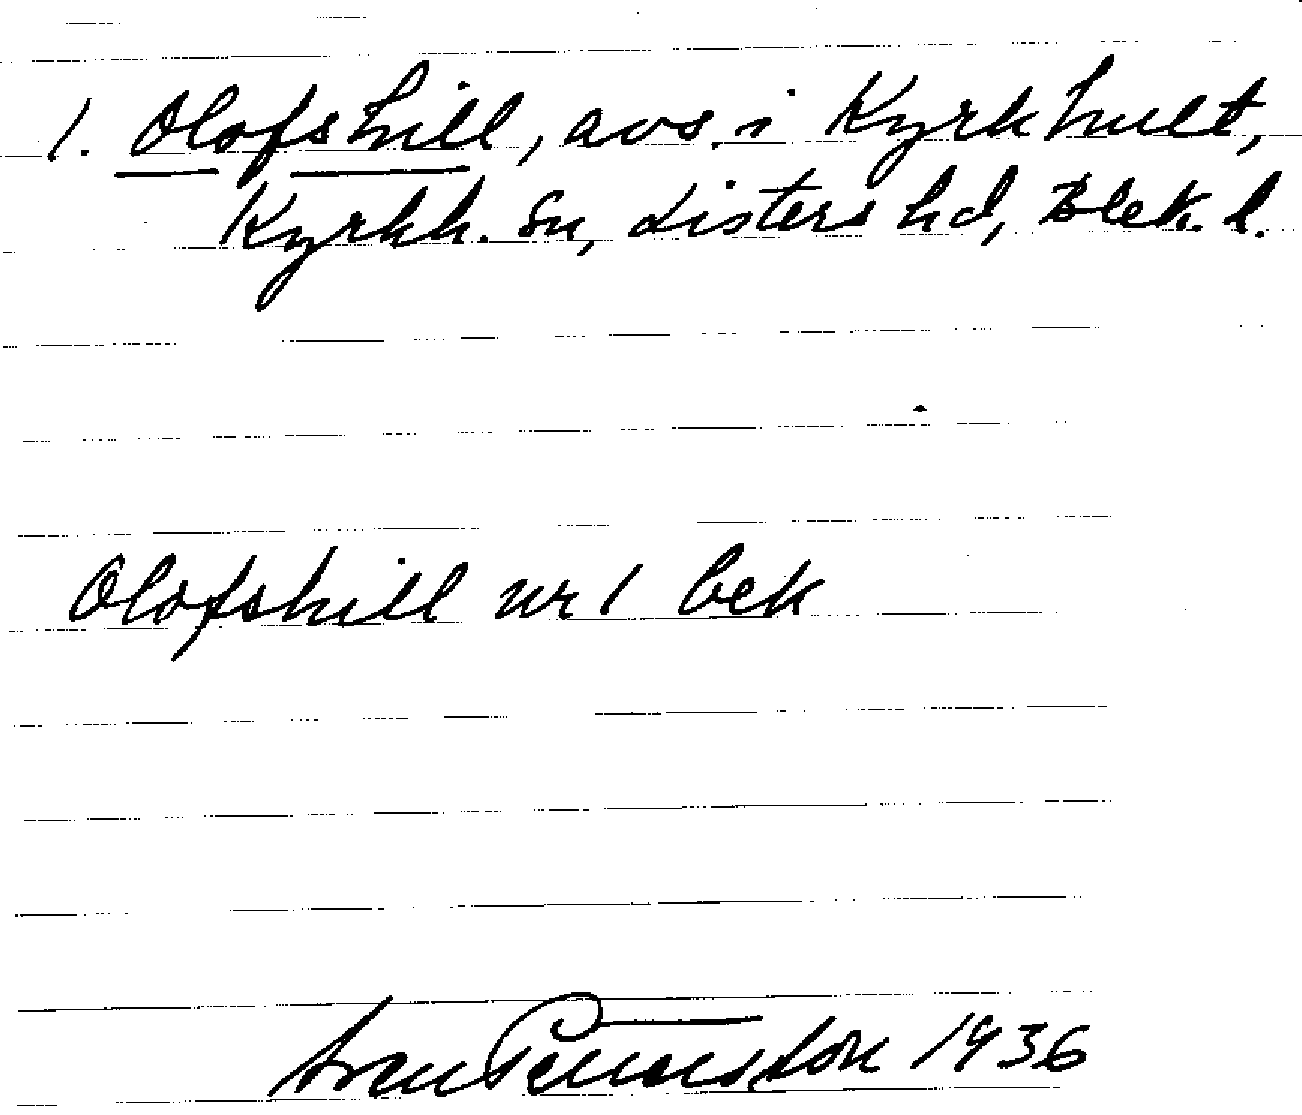 1. Olofshill, avs. i Kyrkhult,
Kyrkh. sn, Listers hd, Blek. l.
Olofshill nr 1 bek
1936